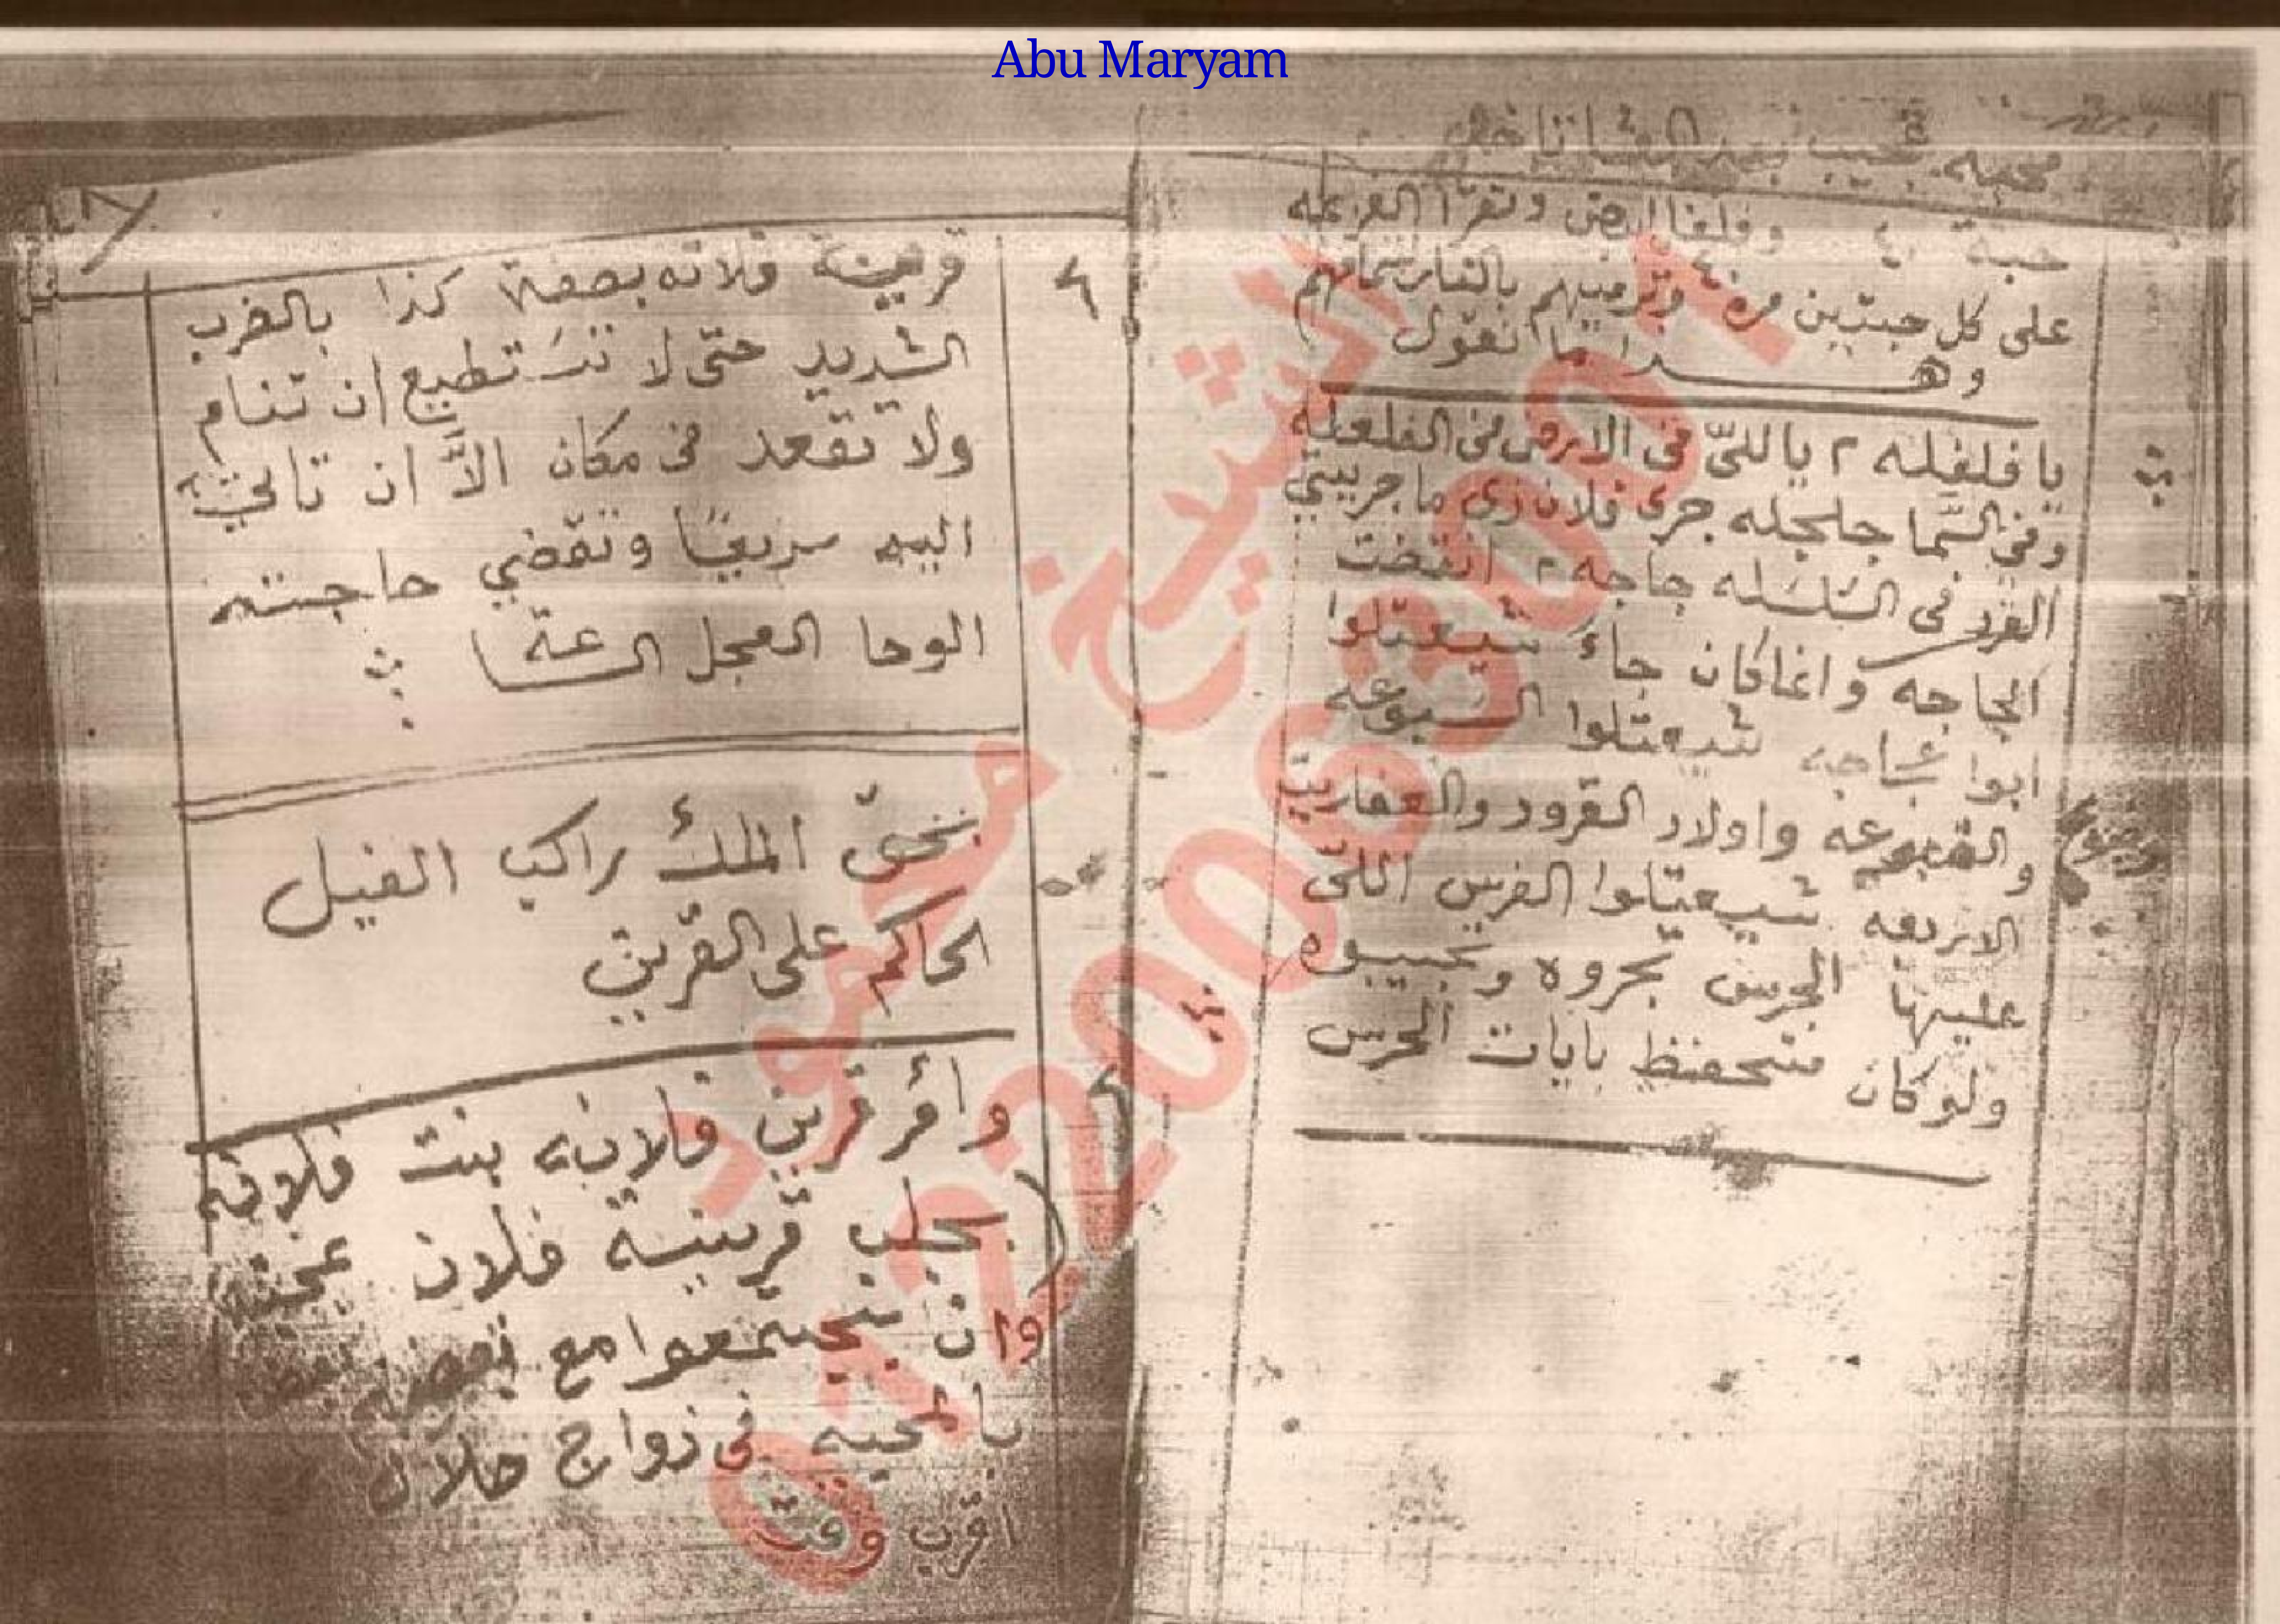 Abu Maryam
محبه تجيب بعد العشا تاخد
حبة ٤٠ وفلفل ابيض وتقرا العزيمه
على كل حبتين مره وترميهم بالنار
وهذا ما تقول
يا فلفله ٢ ياللىّ فى الارض فى الفلفله
وفى السَّما جلجله جرى فلان زى ما جريتى
القرد فى السَّلسَله جاجه ٢ انقضت
الجاجه كان جاءَ شيعتلوا
ابوا شيعتلوا السبوعه
والضبوعه واولاد القرود والعفاريت
الاربعه شيعتلوا الفرس اللىّ
عليها الجرس بجروه وبجيبوه
ولوكان متحفظ بايات الحرس
قرينة فلانه بصفة كذا بالضرب
الشديد حتّى لا تسَتطيع ان تنام
ولا تقعد فى مكان الاَّ ان تاتى
اليه سريعًا وتقضي حاجته
الوحا العجل الساعة
بحقّ الملك راكب الفيل
الحاكم على القرين
وأمر قرين فلانه بنت فلانه
بجلب قرينة فلان
وان يتجمعوا مع بعض
بالمحبه فى زواج حلال
اقرب وقت
الشيخ محمود
01220063001